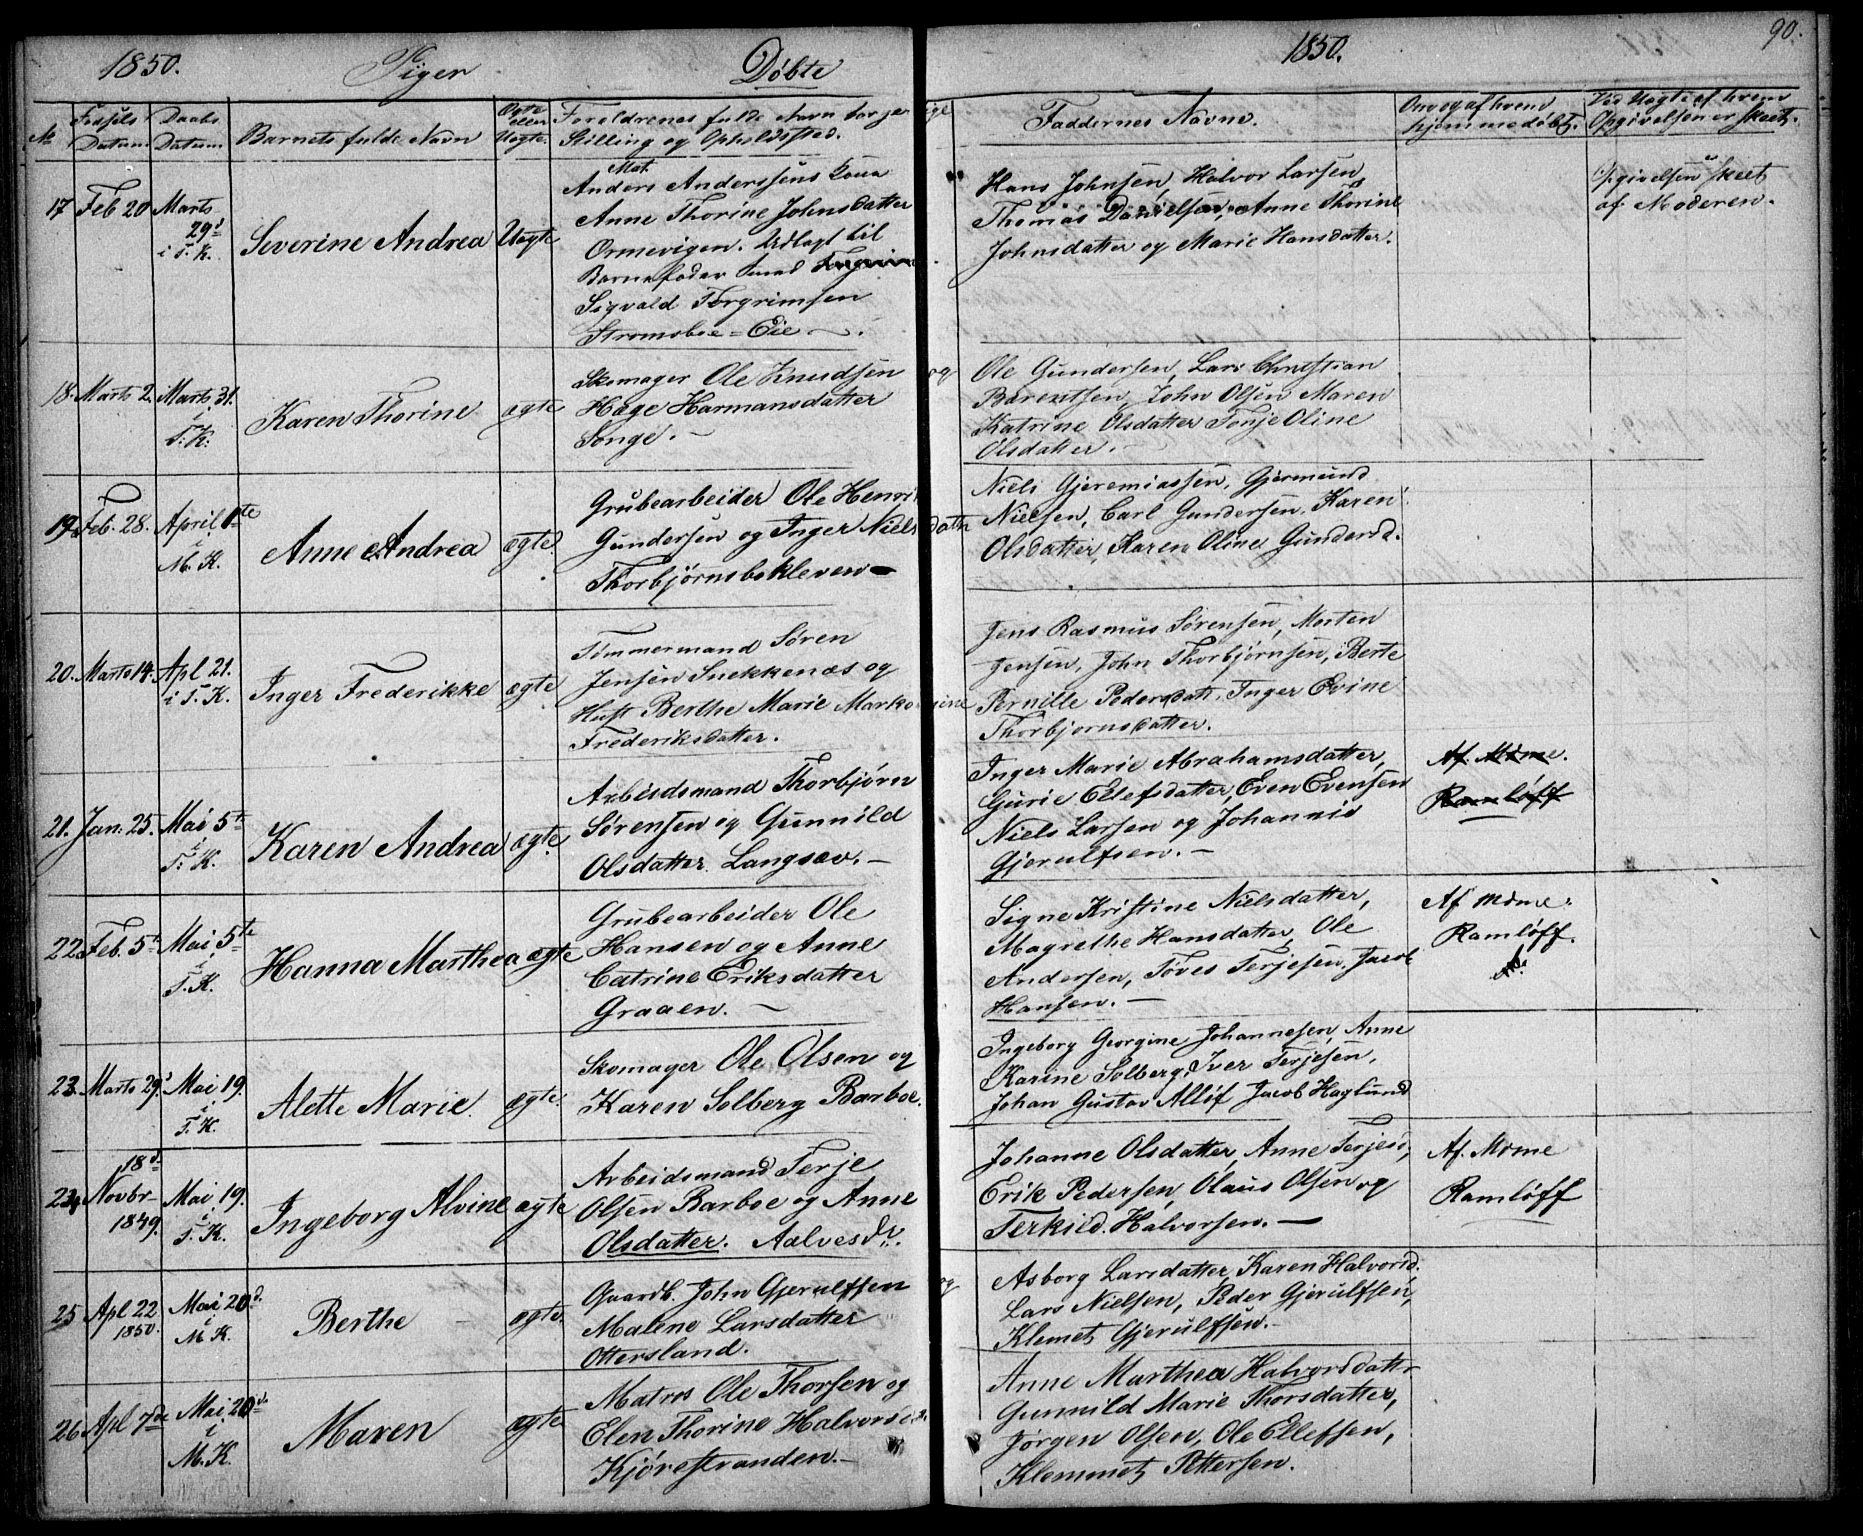 1850.
Piger
Døbte
No
Fødsels Datum
Daabs Datum.
Barnets fulde Navn
Ægte eller Uægte
Forældrenes fulde Navn
Stilling og Opholdssted.
17
Feb 20
Marts
29d
i T. K.
Severine Andrea
Uægte
Mat.
Anders Anderssens Kone
Anne Thorine Johnsdatter
Ormevigen. Udlagt til
Barnefader
Sigvald Torgrimsen
Strømsboe=Eie
18.
Marts 2.
Marts 31.
i
T. K.
Karen Thorine
ægte
Skomager Ole Knudsen og
Hage Harmansdatter
Songe.
19.
Feb. 28.
April 1te
i
M. K.
Anne Andrea
ægte
Grubearbeider Ole Henri
Gundersen og Inger Nielsdatr
Thorbjørnsbokleven
20.
Marts 14.
Apl 21.
i T. K.
Inger Frederikke
ægte
Tømmermand Søren
Jensen Snekkenæs og
Hust Berthe Marie Markosine
Frederiksdatter.
21.
Jan: 25.
Mai 5te
i
T. K.
Karen Andrea
ægte
Arbeidsmand Thorbjørn
Sørensen og Gunnild
Olsdatter. Langsæv.
22.
Feb. 5t
Mai 5te
i
T. K.
Hanna Marthea
ægte
Grubearbeider Ole
Hansen og Anne
Catrine Eriksdatter
Graaen.
23.
Marts 29d
Mai 19.
i
T. K.
Alette Marie.
ægte.
Skomager Ole Olsen og
Karen Solberg Barboe.
24
18d
Novbr
1849.
Mai 19.
i
T. K.
Ingeborg Alvine
ægte
Arbeidsmand Terje
Olsen Barboe og Anne
Olsdatter. Aalvesdr.
25
Apl 22
1850.
Mai 20d.
i
M. K.
Berthe
ægte.
Gaardb. John Gjerulfsen og
Malene Larsdatter
Ottersland.
26
Apl 7de
Mai 20d.
i
M. K.
Maren
ægte
Matros Ole Thorsen og
Elen Thorine Halvorsd.
Kjørestranden.
1850.
90.
Faddernes Navne.
Om og af hvem
hjemmedøbt.
Ved Uægte af hvem
Opgivelsen er skeet.
Hans Johnsen, Halvor Larsen,
Thomas Danielsen, Anne Thorine
Johnsdatter og Marie Hansdatter.
Opgivelsen skeet
af Moderen.
Ole Gundersen, Lars Christian
Barentsen, John Olsen Maren
Katrine Olsdatter Tonje Oline
Olsdatter.
Niels Gjeremiassen, Gjermund
Nielsen, Carl Gundersen, Karen
Olsdatter, Karen Oline Gundersd.
Jens Rasmus Sørensen, Morten
Jensen, John Thorbjørnsen, Berte
Pernille Pedersdatt, Inger Evine
Thorbjørnsdatter.
Inger Marie Abrahamsdatter,
Gurie Ellefsdatter, Even Evensen
Niels Larsen og Johannis
Gjerulfsen.
Af Mdme.
Ramløff
Signe Kristine Nielsdatter,
Magrethe Hansdatter, Ole
Andersen, Toves Terjesen, Jacob
Hansen.
Af Mdme.
Ramløff.
Ingeborg Georgine Johannesen, Anne
Karine Solberg, Iver Terjesen,
Johan Gustav Alløf Jacob Haglund
Johanne Olsdatter, Anne Terjesd,
Erik Pedersen, Olaus Olsen og
Terkild. Halvorsen.
Af. Mdme
Ramløff
Asborg Larsdatter, Karen Halvorsd.
Lars Nielsen, Peder Gjerulfsen,
Klemet Gjerulfsen.
Anne Marthea Halvorsdatr
Gunnild Marie Thorsdatter,
Jørgen Olsen, Ole Ellefsen,
Klemmet Pettersen.